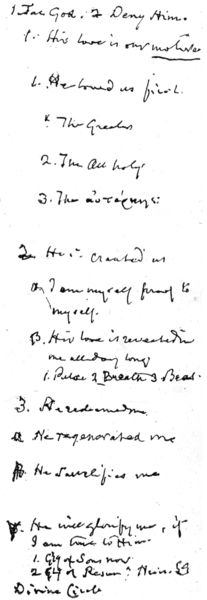 1. For God. I Deny Him.
1. His love is our motive
1. He loved us first.
The Greatest
2. The All holy
3. The
2. He created us
I am myself proof to
myself.
B. His love is revealed in
me all day long
1. Pulse 2 Breath 3 Bea
3. He redeemed me.
He regenerated me
He sanctifies me
He will glorify me, if
I am true to Him.
1. of Sons now
2 of Heirs
Divine Circle